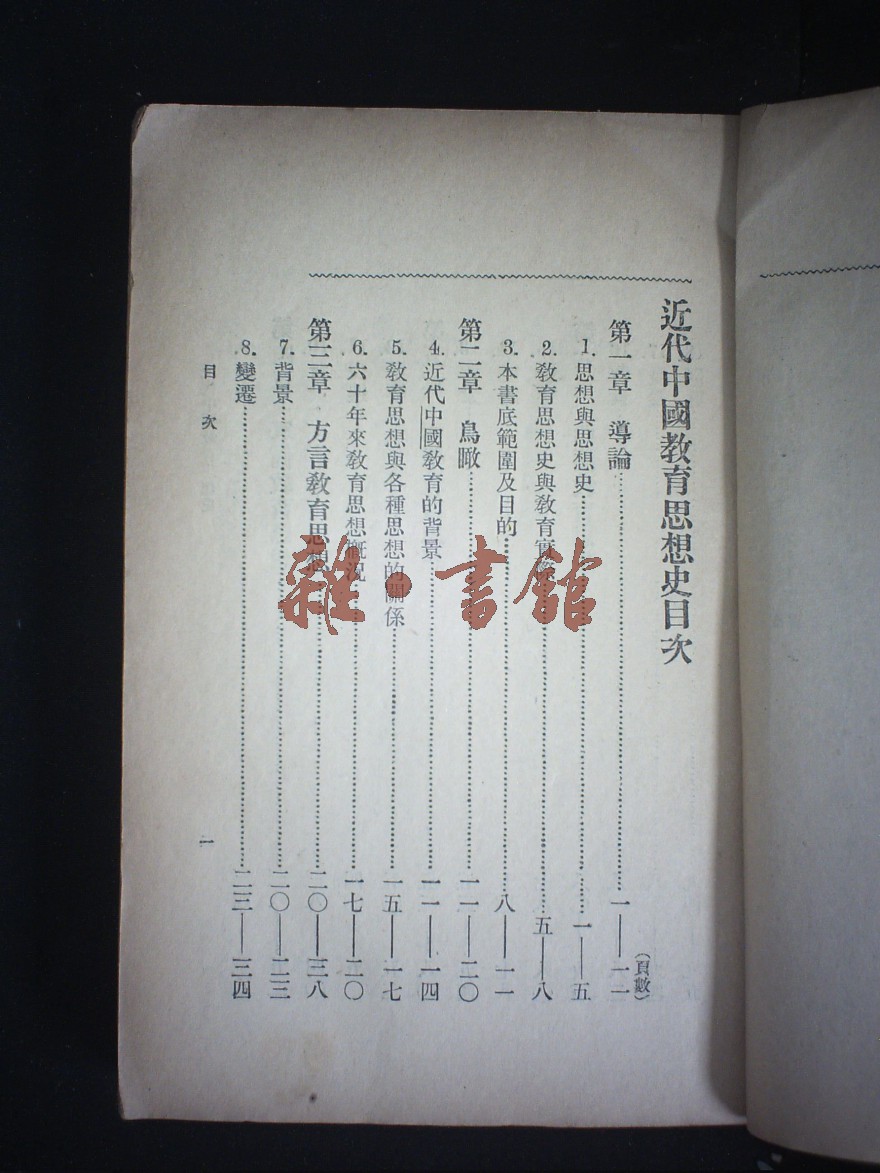 近代中國教育思想史目次
(頁數)
第一章　導論……一——一一
1. 思想與思想史……一——五
2. 教育思想史與教育實際……五——八
3. 本書底範圍及目的……八——一一
第二章　鳥瞰……一一——二〇
4. 近代中國教育的背景……一一——一四
5. 教育思想與各種思想的關係……一五——一七
6. 六十年來教育思想概況……一七——二〇
第三章　方言教育思想……二〇——三八
7. 背景……二〇——二三
8. 變遷……二三——三四
目次
一
雜·書館